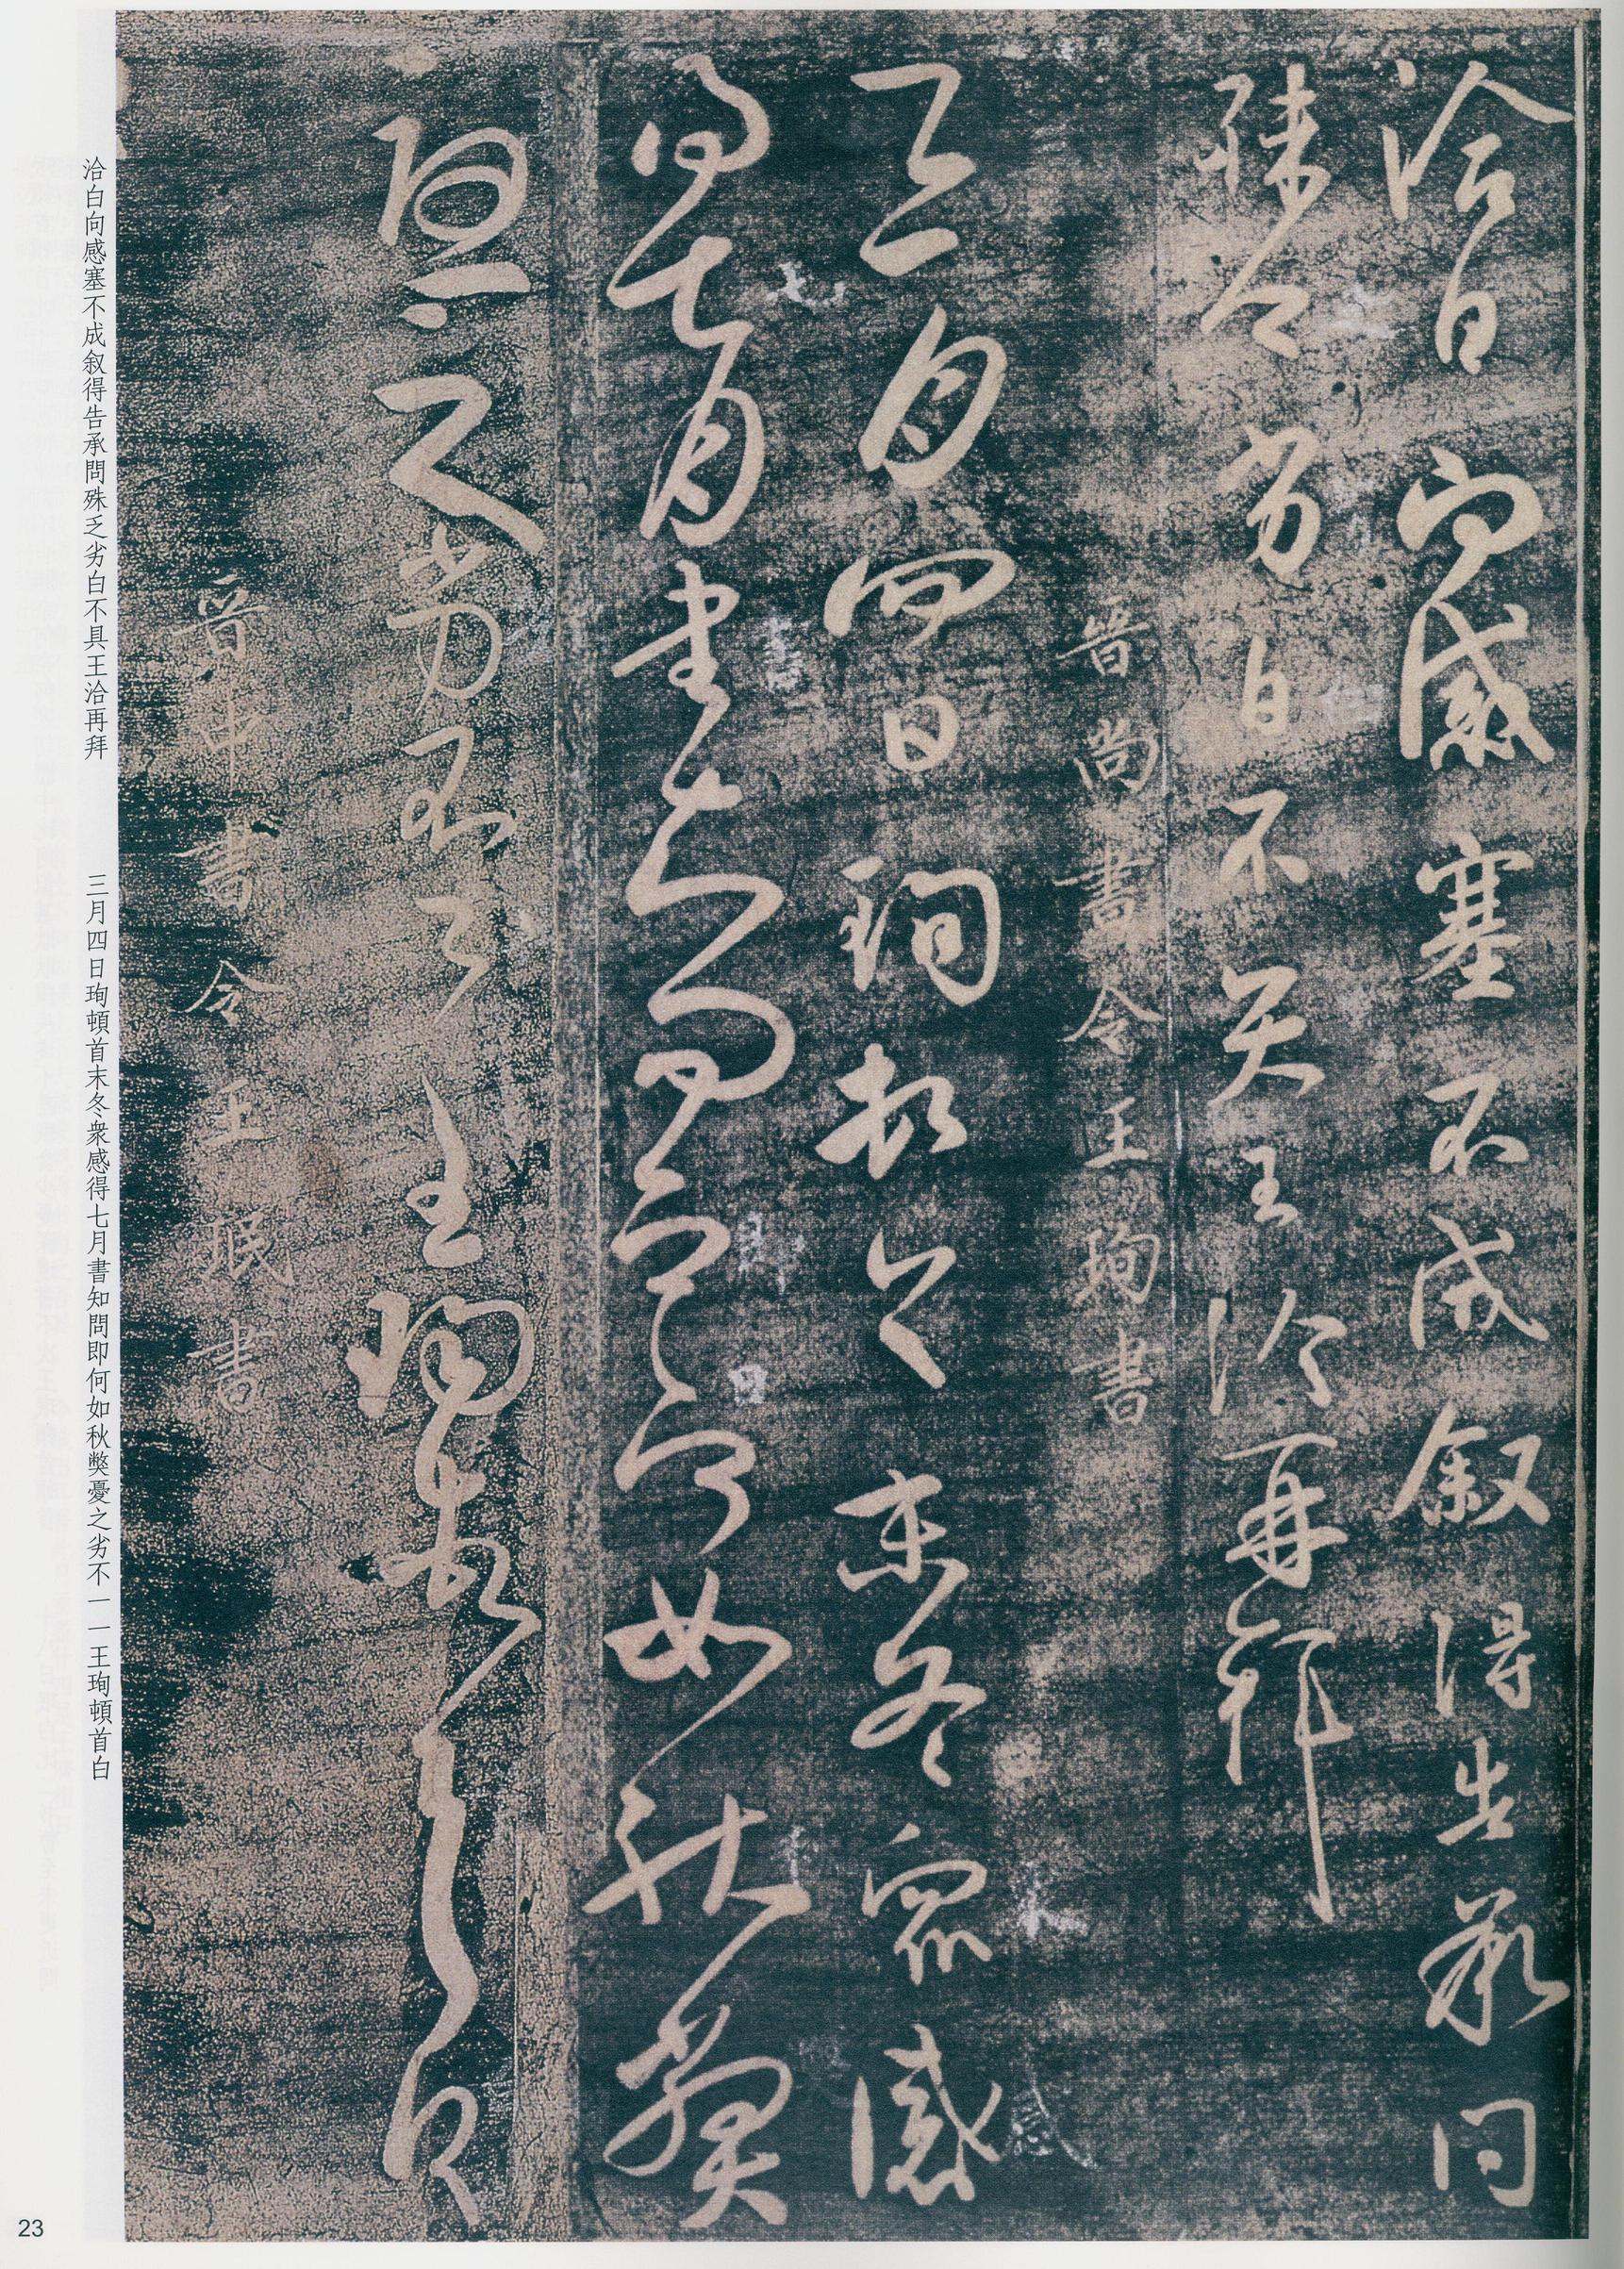 洽白向感塞不成叙得告承問
殊乏劣白不具王洽再拜
晉尚書令王珣書
三月四日珣頓首末冬衆感
得七月書知問即何如秋弊
憂之劣不一一王珣頓首白
晉中書令王珉書
七
書
即
洽白向感塞不成叙得告承問殊乏劣白不具王洽再拜
三月四日珣頓首末冬衆感得七月書知問即何如秋弊憂之劣不一一王珣頓首白
23